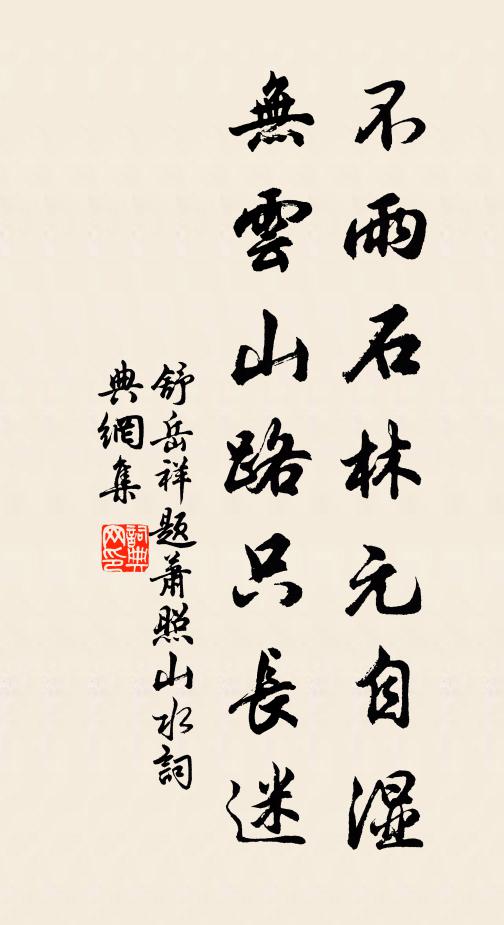 不雨石林元自湿
無雲山路只長迷
舒岳祥題蕭照山水詞
典網集
詞典網印